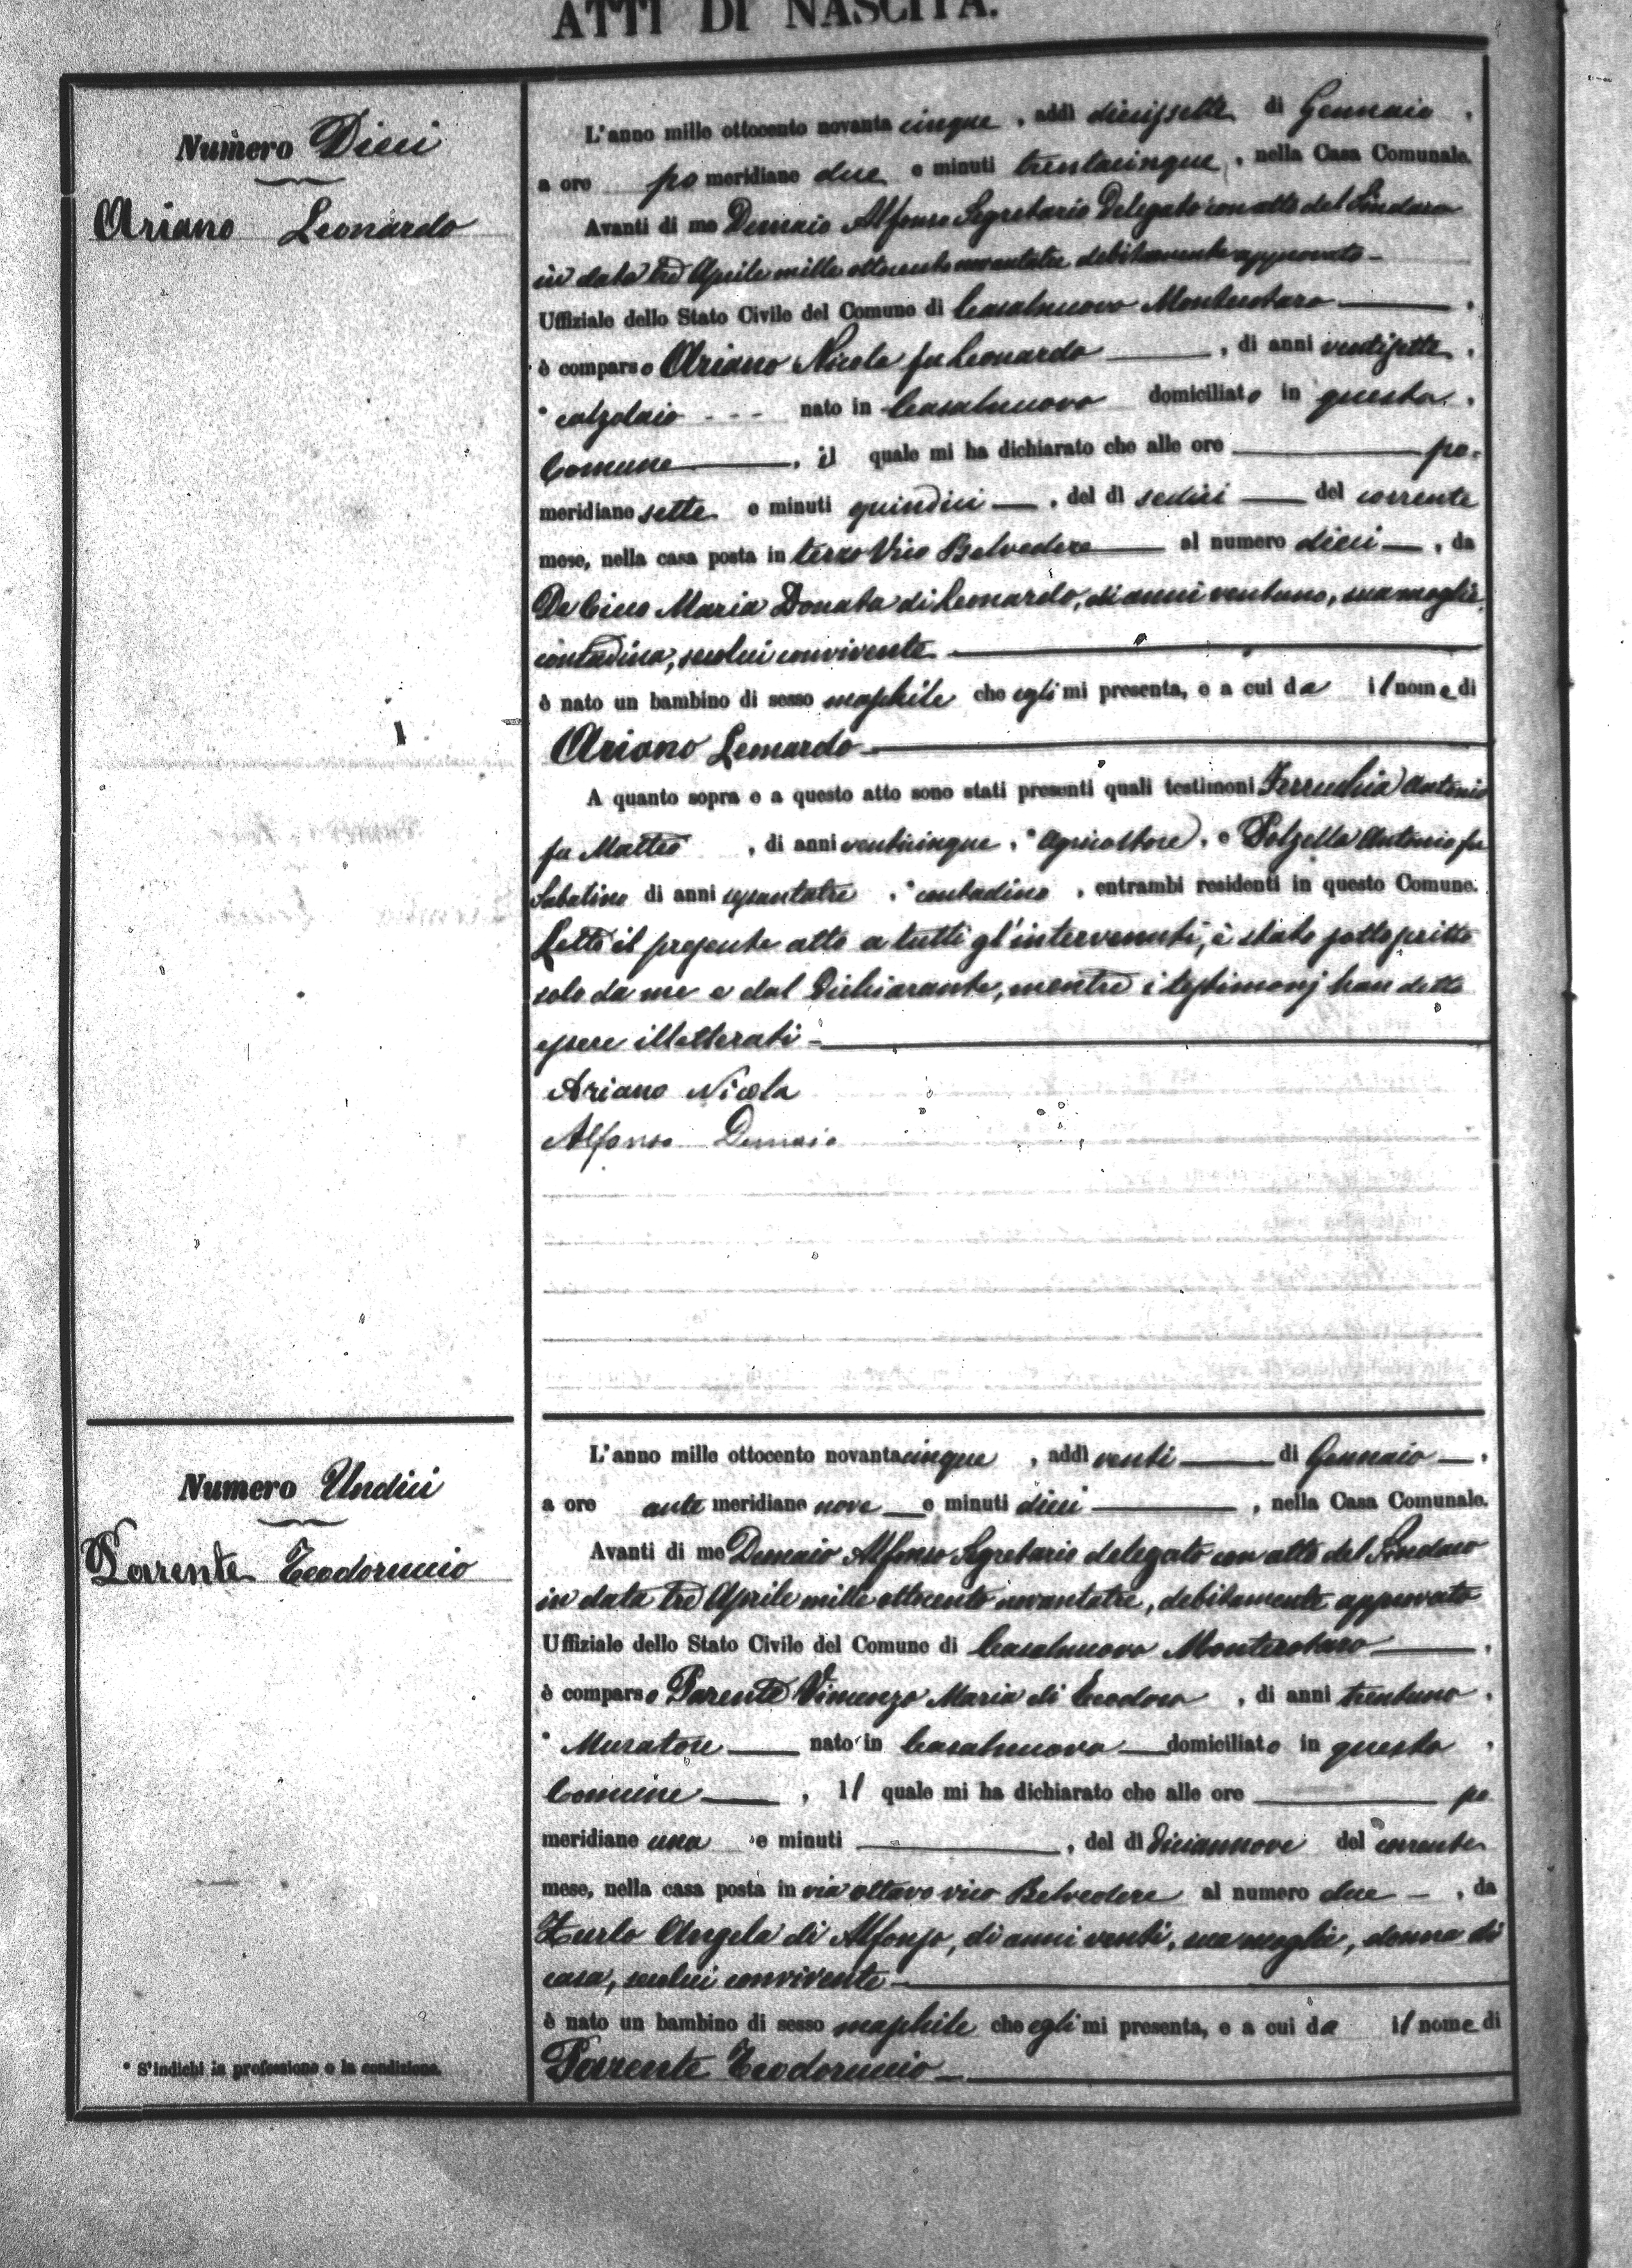 ATTI DI NASCITA.
Numero Dieci
Ariano Leonardo
L'anno mille ottocento novanta cinque, addì diciassette di Gennaio,
a ore po meridiane due e minuti trentacinque, nella Casa Comunale.
Avanti di me Demaio Alfonso Segretario Delegato con atto del Sindaco
in data tre Aprile mille ottocento novantatre debitamente approvato
Uffiziale dello Stato Civile del Comune di Casalnuovo Monterotaro,
è comparso Ariano Nicola fu Leonardo, di anni ventisette,
* calzolaio nato in Casalnuovo domiciliato in questo
Comune, il quale mi ha dichiarato che alle ore po-
meridiane sette e minuti quindici, del dì sedici del corrente
mese, nella casa posta in terzo Vico Belvedere al numero dieci, da
De Cicco Maria Donata di Leonardo, di anni ventuno, sua moglie,
contadina, seco lui convivente
è nato un bambino di sesso maschile che egli mi presenta, e a cui da il nome di
Ariano Leonardo
A quanto sopra e a questo atto sono stati presenti quali testimoni Ferrucchia Antonio
fu Matteo, di anni venticinque, * Agricoltore, e Polzella Antonio fu
Sabatino di anni sessantatre, * contadino, entrambi residenti in questo Comune.
Letto il presente atto a tutti gl'intervenuti, è stato sottoscritto
solo da me e dal Dichiarante, mentre i testimonj han detto
essere illetterati
Ariano Nicola
Alfonso Demaio
Numero Undici
Parente Teodoruccio
L'anno mille ottocento novantacinque, addì venti di Gennaio,
a ore ante meridiane nove e minuti dieci, nella Casa Comunale.
Avanti di me Demaio Alfonso Segretario delegato con atto del Sindaco
in data tre Aprile mille ottocento novantatre, debitamente approvato
Uffiziale dello Stato Civile del Comune di Casalnuovo Monterotaro,
è comparso Parente Vincenzo Maria di Teodoro, di anni trentuno,
* Muratore nato in Casalnuovo domiciliato in questo
Comune, il quale mi ha dichiarato che alle ore po
meridiane una e minuti, del dì diciannove del corrente
mese, nella casa posta in via ottavo vico Belvedere al numero due, da
Zurlo Angela di Alfonso, di anni venti, sua moglie, donna di
casa, seco lui convivente
è nato un bambino di sesso maschile che egli mi presenta, e a cui da il nome di
Parente Teodoruccio
* S'indichi la professione o la condizione.